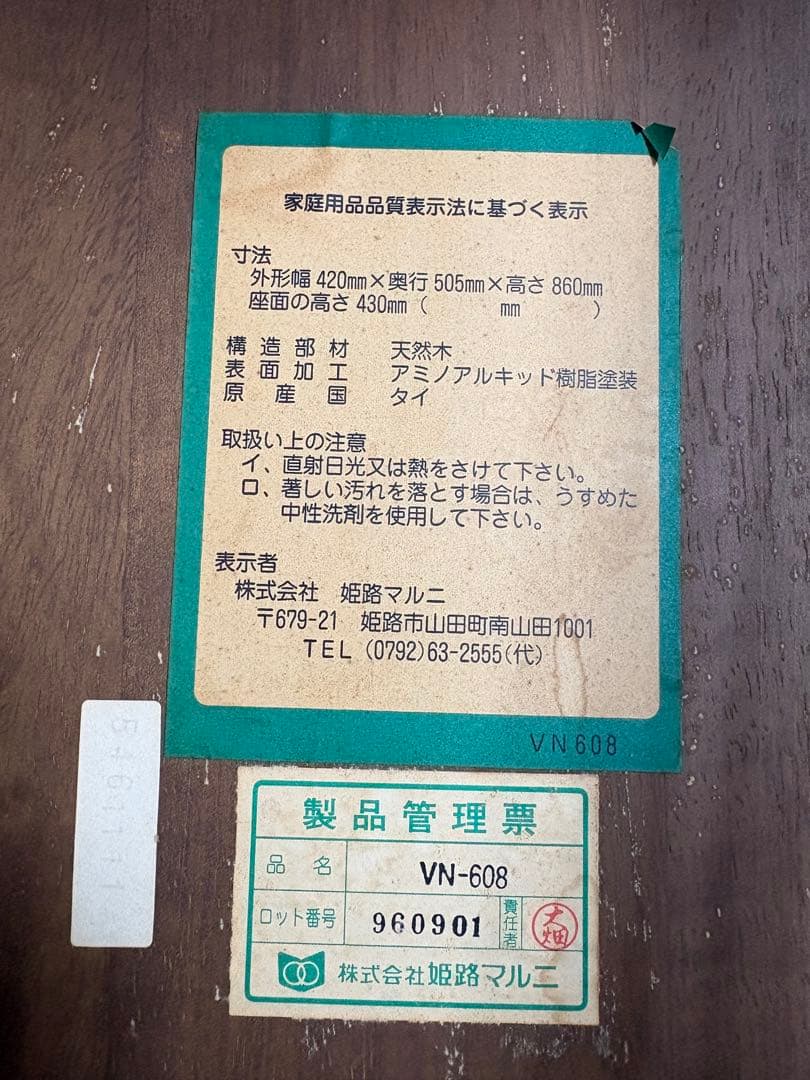 家庭用品品質表示法に基づく表示
寸法
外形幅420mm×奥行505mm×高さ860mm
座面の高さ430mm (　　　mm　　　)
構造部材　天然木
表面加工　アミノアルキッド樹脂塗装
原産国　タイ
取扱い上の注意
イ、直射日光又は熱をさけて下さい。
ロ、著しい汚れを落とす場合は、うすめた
中性洗剤を使用して下さい。
表示者
株式会社　姫路マルニ
〒679-21　姫路市山田町南山田1001
TEL (0792)63-2555(代)
VN608
製品管理票
品名　VN-608
ロット番号　960901　責任者　大畑
株式会社姫路マルニ